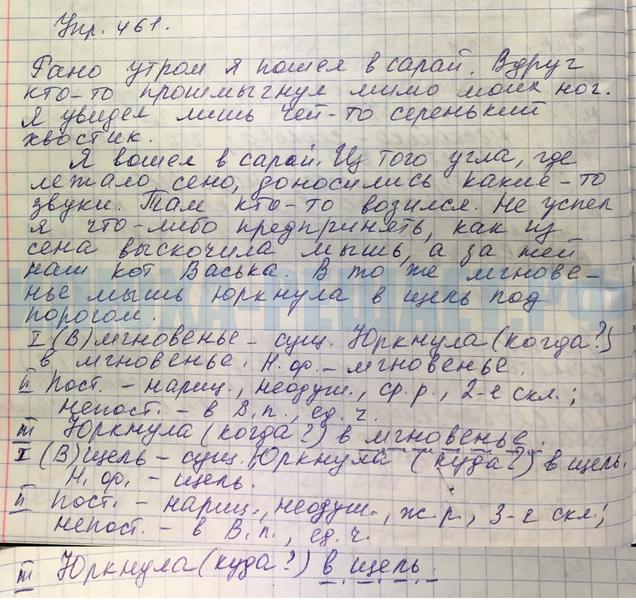 Упр. 461.
Рано утром я пошел в сарай. Вдруг
кто-то прошмыгнул мимо моих ног.
Я увидел лишь чей-то серенький
хвостик.
Я вошел в сарай. Из того угла, где
лежало сено, доносились какие-то
звуки. Там кто-то возился. Не успел
я что-либо предпринять, как из
сена выскочила мышь, а за ней
наш кот Васька. В то же мгнове-
нье мышь юркнула в щель под
порогом.
I (В) мгновенье - сущ. Юркнула (когда?)
в мгновенье. Н.ф. - мгновенье.
II Пост. - нариц., неодуш., ср.р., 2-е скл.;
непост. - в В.п., ед.ч.
III Юркнула (когда?) в мгновенье.
I (В) щель - сущ. Юркнула (куда?) в щель.
Н.ф. - щель.
II Пост. - нариц., неодуш., ж.р., 3-е скл.;
непост. - в В.п., ед.ч.
III Юркнула (куда?) в щель.